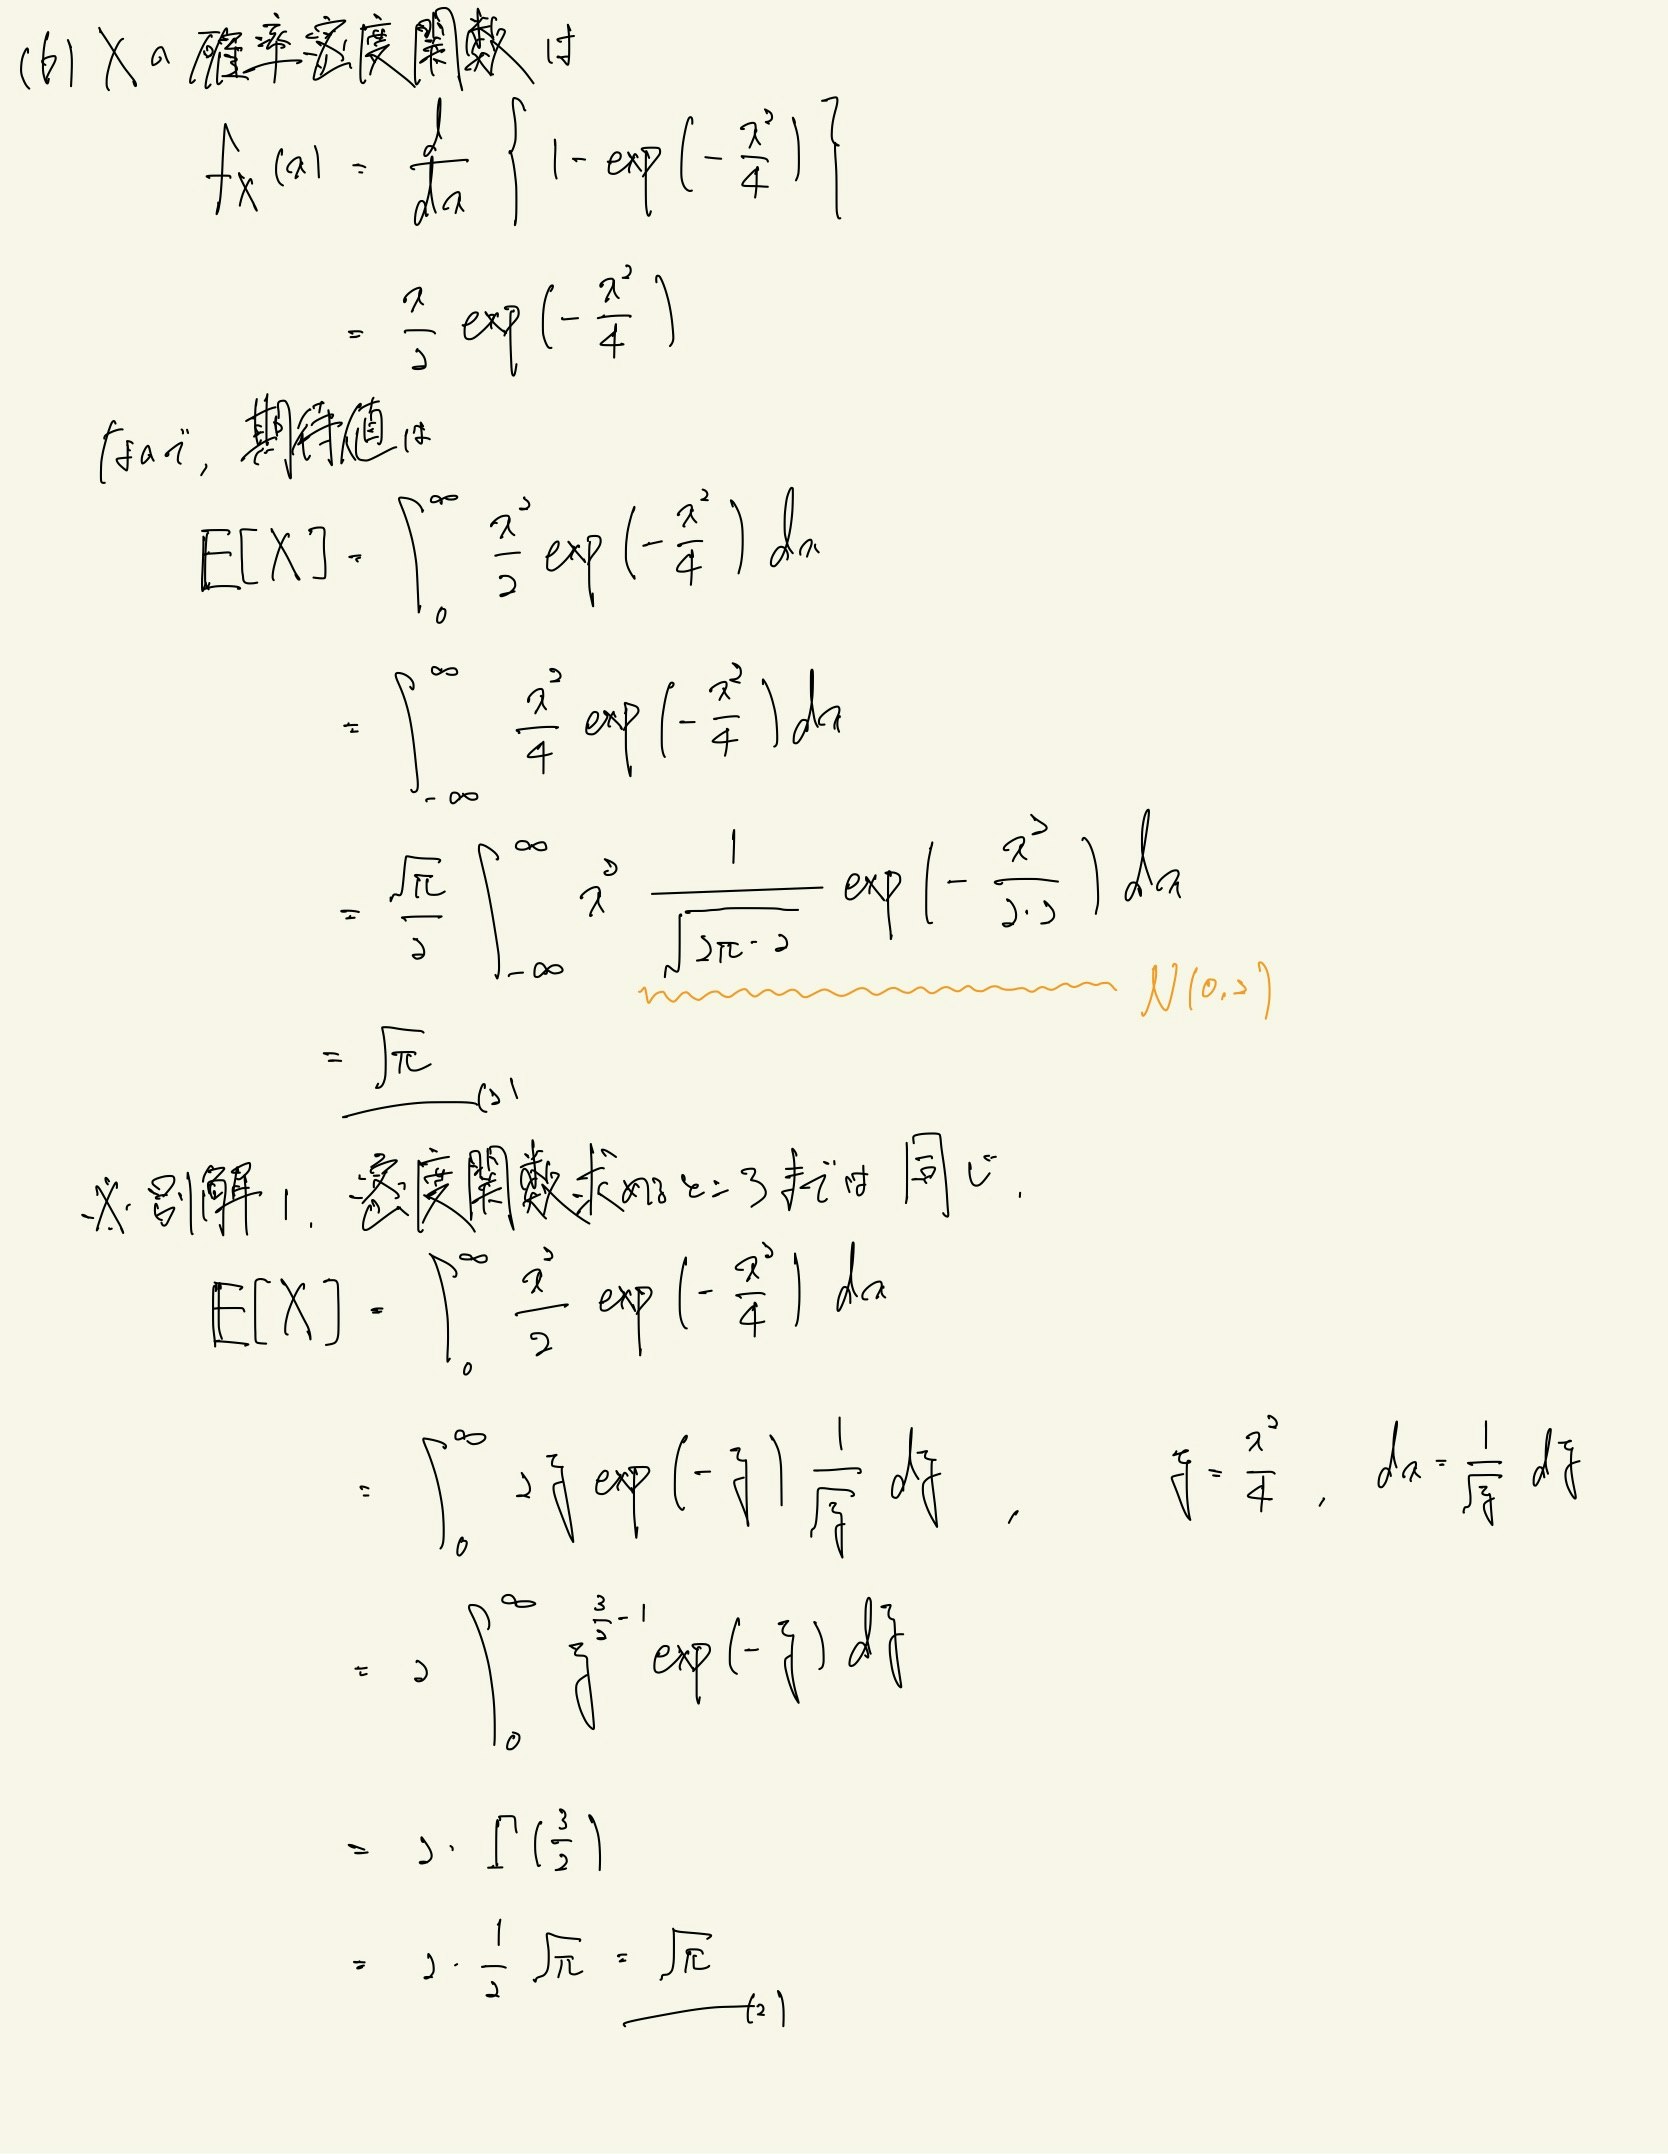 (b) Xの確率密度関数は
f_X(x) = d/dx { 1 - exp(-x²/4) }
= x/2 exp(-x²/4)
なので, 期待値は
E[X] = ∫_0^∞ x²/2 exp(-x²/4) dx
= ∫_{-∞}^∞ x²/4 exp(-x²/4) dx
= √π/2 ∫_{-∞}^∞ x² 1/√(2π·2) exp(-x²/(2·2)) dx
N(0,2)
= √π (2)
※別解1. 密度関数求めるところまでは同じ.
E[X] = ∫_0^∞ x²/2 exp(-x²/4) dx
= ∫_0^∞ 2z exp(-z) 1/√z dz , z = x²/4 , dx = 1/√z dz
= 2 ∫_0^∞ z^{3/2-1} exp(-z) dz
= 2·Γ(3/2)
= 2·1/2 √π = √π (2)